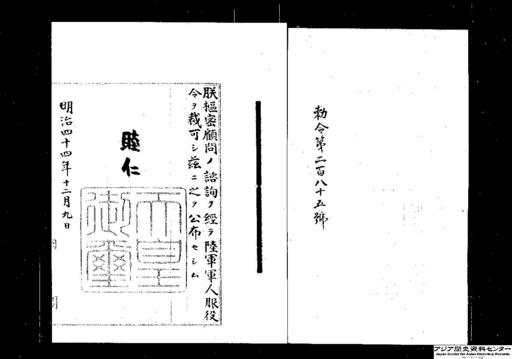 勅令第二百八十五號
朕樞密顧問ノ諮詢ヲ經テ陸軍軍人服役
令ヲ裁可シ茲ニ之ヲ公布セシム
睦仁
天皇
御璽
明治四十四年十二月九日
内閣
アジア歴史資料センター
Japan Center for Asian Historical Records